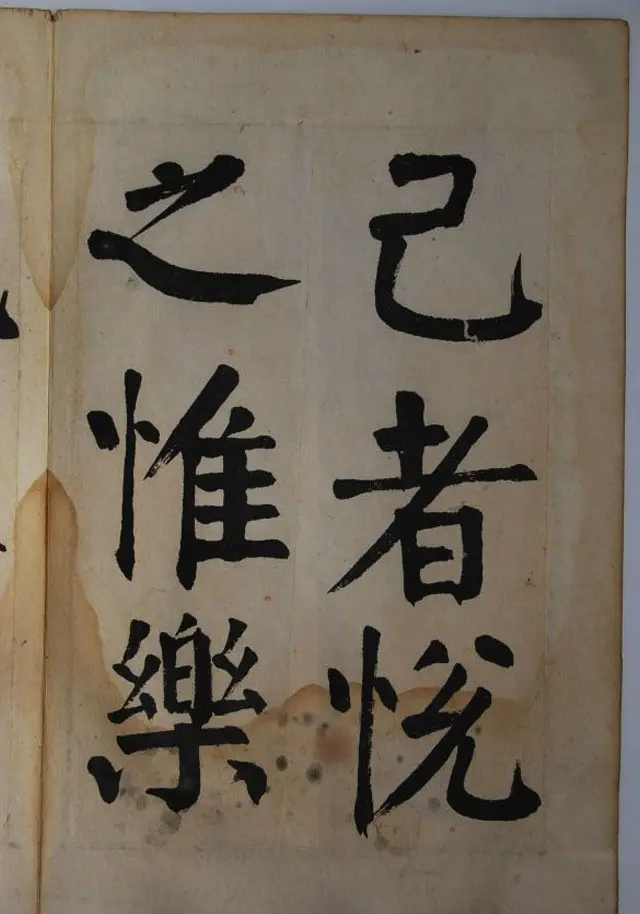 己者悅
之惟樂